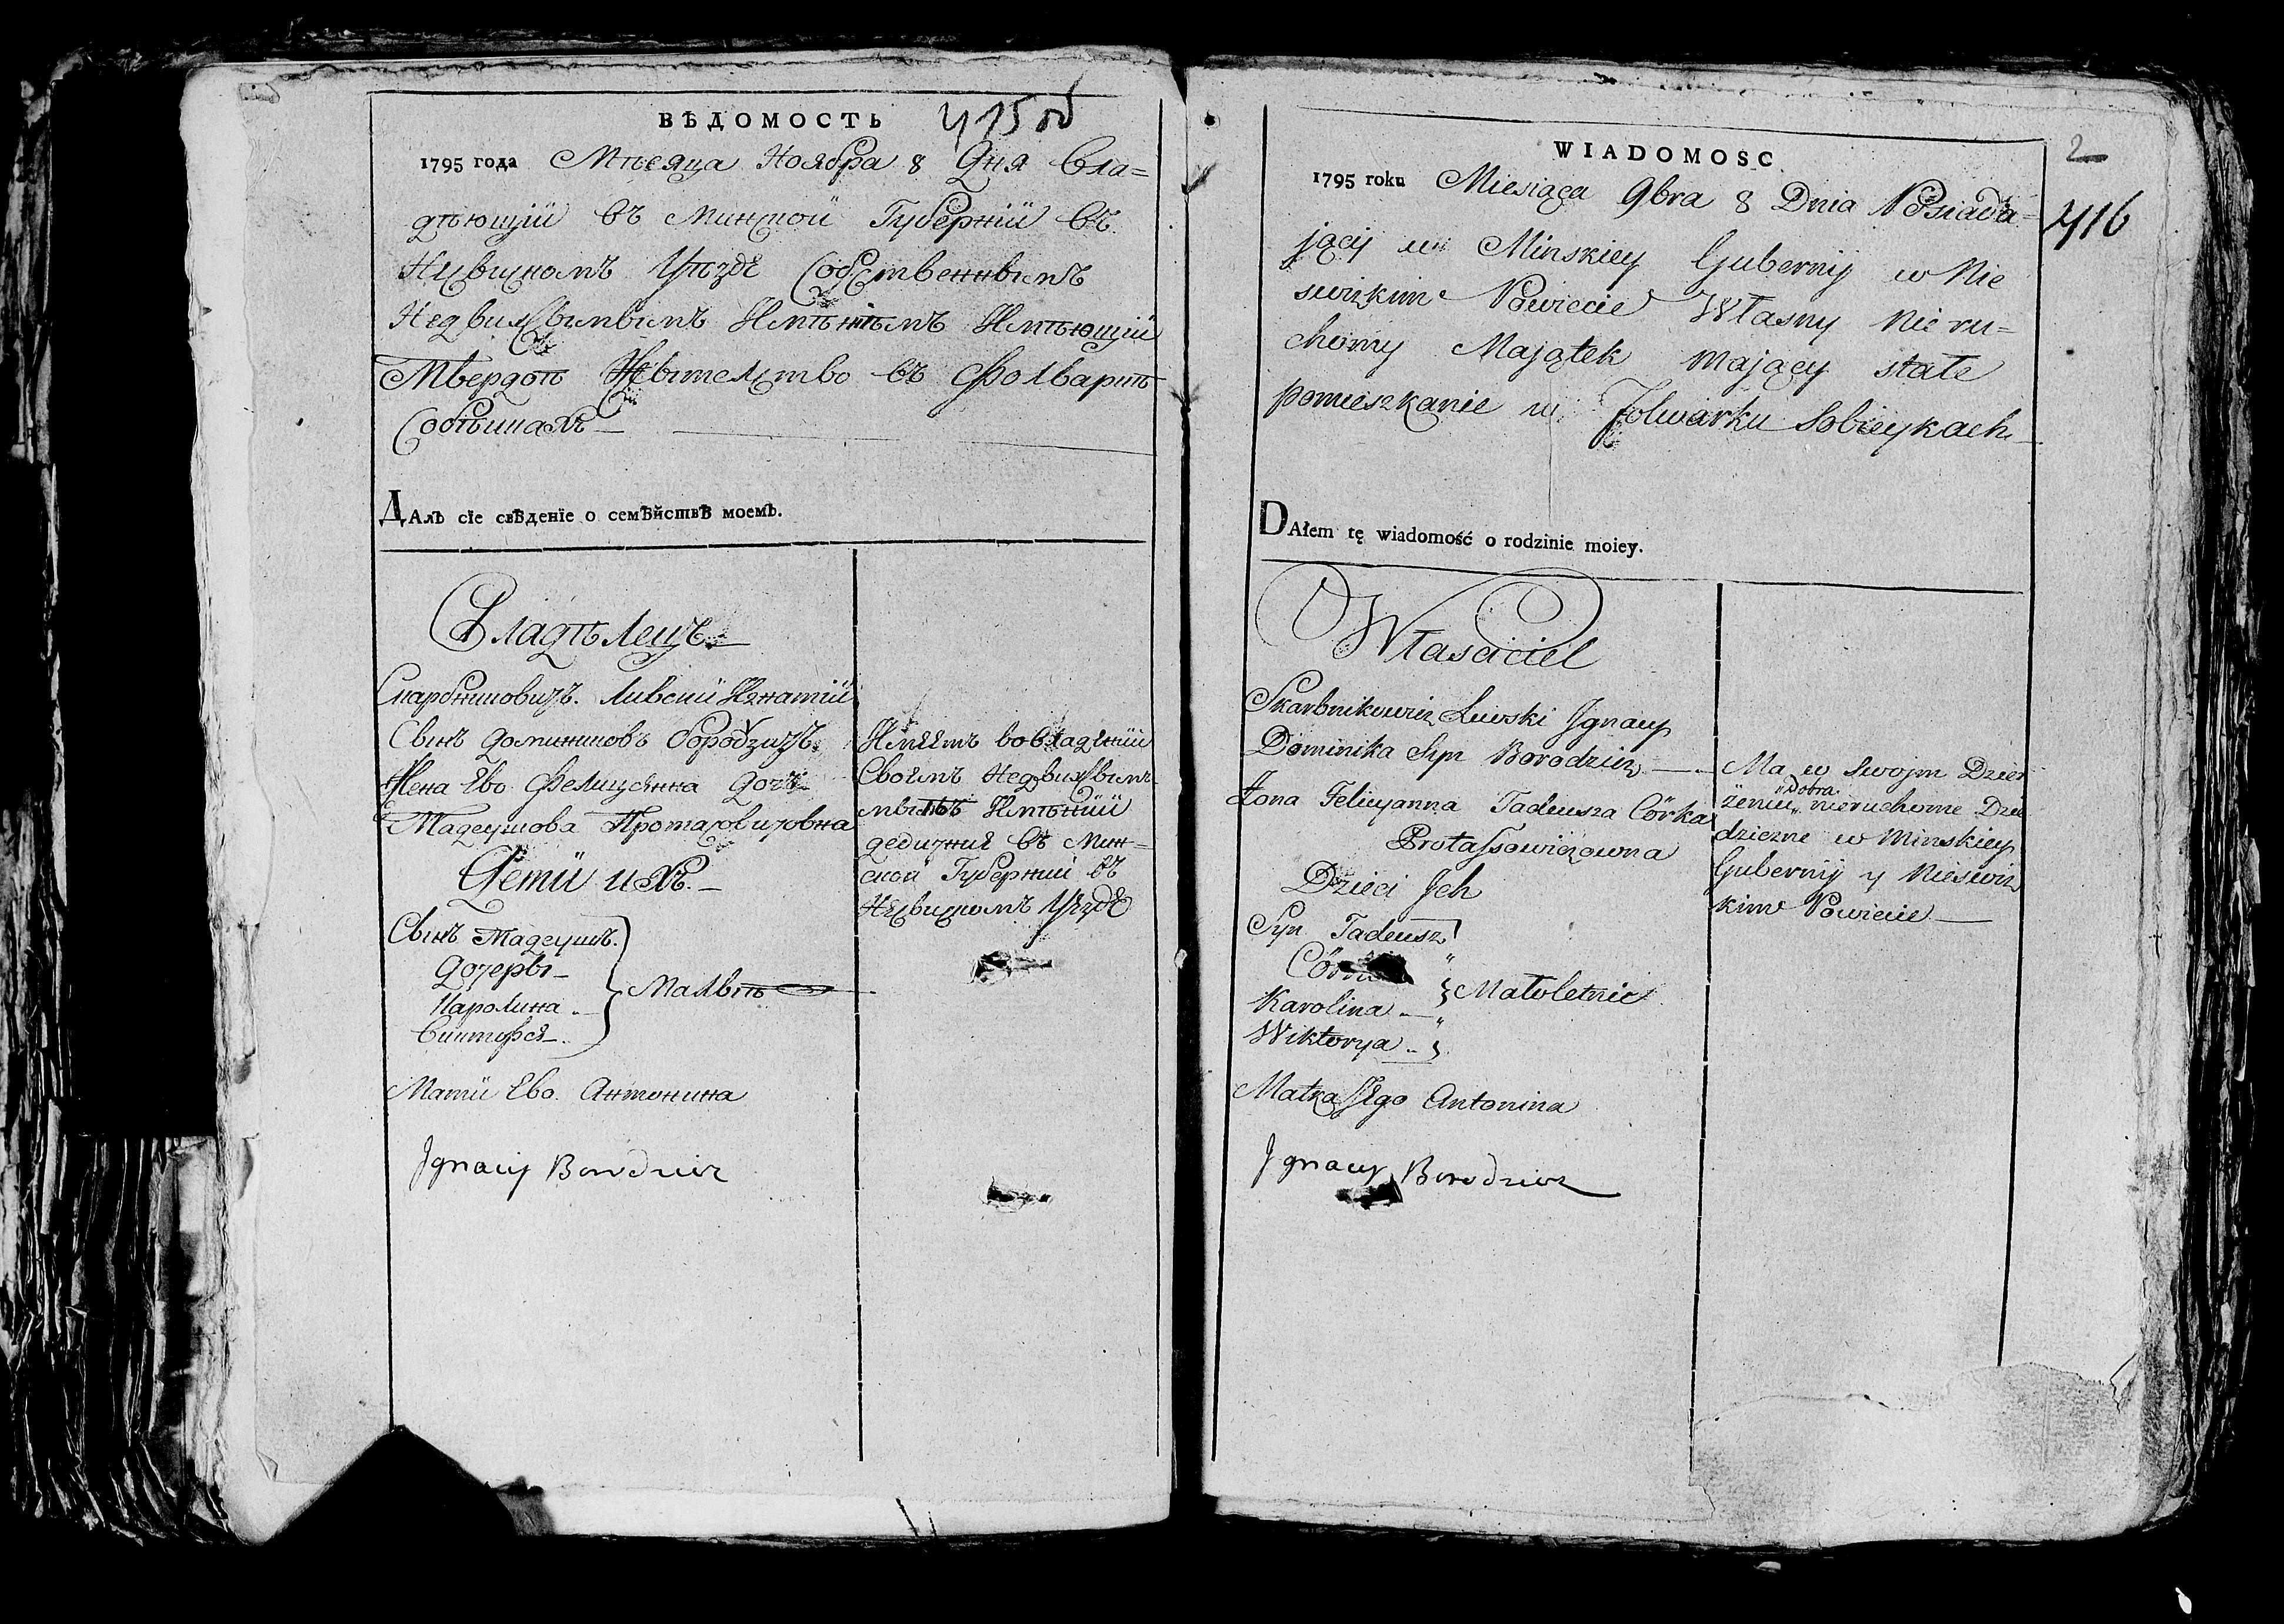 ВѢДОМОСТЬ 415 об
1795 года Мѣсяца Ноября 8 Дня Вла=
дѣющій въ Минской Губерніи въ
Несвискомъ Уѣздѣ Собственнымъ
Недвижимымъ Имѣніемъ Имѣющій
Твердое Жытелство въ Фолваркѣ
Собѣйкахъ
ДАлъ сіе свѣденіе о семѣйствѣ моемъ.
Владѣлецъ
Скарбниковичъ Ливскій Игнатій
Сынъ Доминиковъ Бородзичъ
Жена Ево Фелицыянна Дочь
Тадеушова Протасовичовна
Дѣти ихъ
Сынъ Тадеушъ
Дочеры
Каролина
Викторья
Малыѣ
Мати Ево Антонина
Ignacy Borodzicz
Имѣетъ во владѣніи
Своемъ Недвижым-
мыѣ Имѣніи
дедичние въ Мин=
ской Губерніи въ
Несвискомъ Уездѣ
2
416
WIADOMOSC
1795 roku Miesiąca 9bra 8 Dnia Posiada=
jący w Minskiey Gubernij w Nie
swizkim Powiecie Własny nieru=
chomy Majątek mający stałe
pomieszkanie w Folwarku Sobieykach
DAłem tę wiadomość o rodzinie moiey.
Własciciel
Skarbnikowicz Liwski Ignacy
Dominika Syn Borodzicz
Żona Felicyanna Tadeusza Córka
Protassowiczowna
Dzieci Ich
Syn Tadeusz
Karolina
Wiktorya
Małoletnie
Matka Jego Antonina
Ignacy Borodzicz
Ma w Swojm Dzier
żeniu Dobra nieruchome Dzie
dziczne w Minskiey
Gubernij y Nieswiz
kim Powiecie